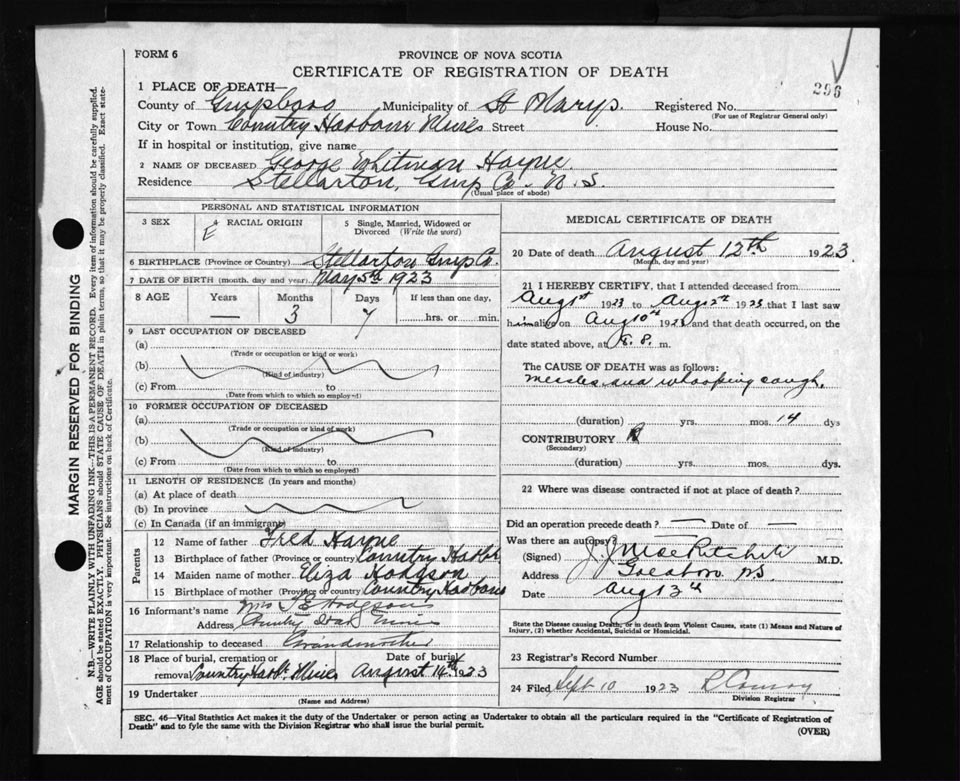 FORM 6
PROVINCE OF NOVA SCOTIA
CERTIFICATE OF REGISTRATION OF DEATH
296
1 PLACE OF DEATH—
County of Municipality of St Marys. Registered No.
(For use of Registrar General only)
City or Town Country Harbour Mines Street House No.
If in hospital or institution, give name
2 NAME OF DECEASED George Whitman Hayne.
Residence Stellarton, Co. N. S.
(Usual place of abode)
MARGIN RESERVED FOR BINDING
N.B.—WRITE PLAINLY WITH UNFADING INK—THIS IS A PERMANENT RECORD. Every item of information should be carefully supplied.
AGE should be stated EXACTLY. PHYSICIANS should STATE CAUSE OF DEATH in plain terms, so that it may be properly classified. Exact state-
ment of OCCUPATION is very important. See instructions on back of Certificate.
PERSONAL AND STATISTICAL INFORMATION
3 SEX
4 RACIAL ORIGIN
E
5 Single, Married, Widowed or
Divorced (Write the word)
6 BIRTHPLACE (Province or Country) Stellarton Co.
7 DATE OF BIRTH (month, day and year) May 5th 1923
8 AGE Years Months Days If less than one day,
— 3 7 hrs. or min.
9 LAST OCCUPATION OF DECEASED
(a)
(Trade or occupation or kind or work)
(b)
(Kind of industry)
(c) From to
(Date from which to which so employed)
10 FORMER OCCUPATION OF DECEASED
(a)
(Trade or occupation or kind of work)
(b)
(Kind of industry)
(c) From to
(Date from which to which so employed)
11 LENGTH OF RESIDENCE (In years and months)
(a) At place of death
(b) In province
(c) In Canada (if an immigrant)
Parents
12 Name of father Fred Hayne
13 Birthplace of father (Province or Country) Country Harbr
14 Maiden name of mother Eliza Hodgson
15 Birthplace of mother (Province or Country) Country Harbour
16 Informant's name Mrs Hodgson
Address Country Mines
17 Relationship to deceased Grandmother
18 Place of burial, cremation or Date of burial
removal Country Harbr. Mines August 14th 1923
19 Undertaker
(Name and Address)
MEDICAL CERTIFICATE OF DEATH
20 Date of death August 12th 1923
(Month, day and year)
21 I HEREBY CERTIFY, that I attended deceased from
Aug 1st 1923 to Aug 12th 1923 that I last saw
him alive on Aug 10th 1923 and that death occurred, on the
date stated above, at m.
THE CAUSE OF DEATH was as follows:
measles and whooping cough.
(duration) yrs. mos. 14 dys
CONTRIBUTORY
(Secondary)
(duration) yrs. mos. dys.
22 Where was disease contracted if not at place of death?
Did an operation precede death? — Date of —
Was there an autopsy?
(Signed) J. J. MacRitchie M.D.
Address Goldboro N.S.
Date Aug 13th
State the Disease causing Death, or in death from Violent Causes, state (1) Means and Nature of
Injury, (2) whether Accidental, Suicidal or Homicidal.
23 Registrar's Record Number
24 Filed Sept 10 1923 Conroy
Division Registrar
SEC. 46—Vital Statistics Act makes it the duty of the Undertaker or person acting as Undertaker to obtain all the particulars required in the "Certificate of Registration of
Death" and to fyle the same with the Division Registrar who shall issue the burial permit.
(OVER)